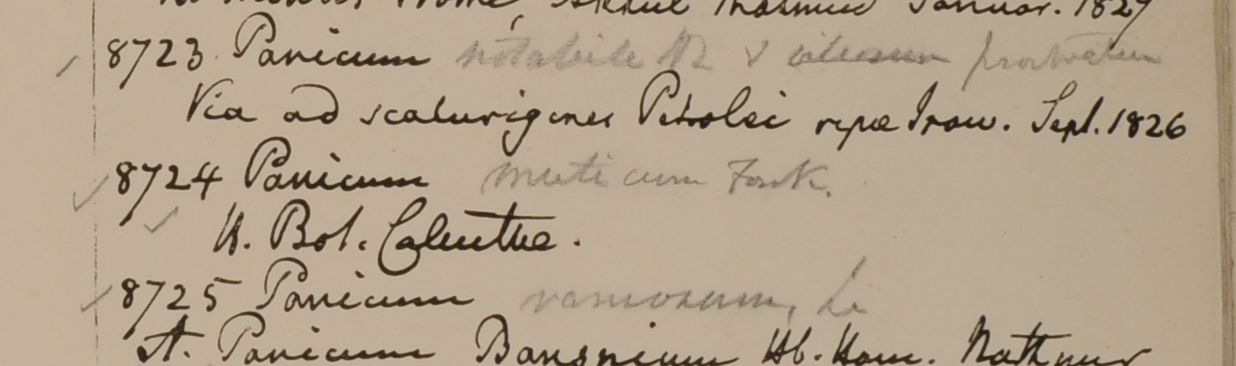 Januar. 1827
8723 Panicum notabile prostratum
Via ad scaturigines Petrolei ripæ Iraw. Sept. 1826
8724 Panicum muticum Forsk.
H. Bot. Calcuttae.
8725 Panicum ramosum, Li
A. Panicum Hb. Ham. Nathpur